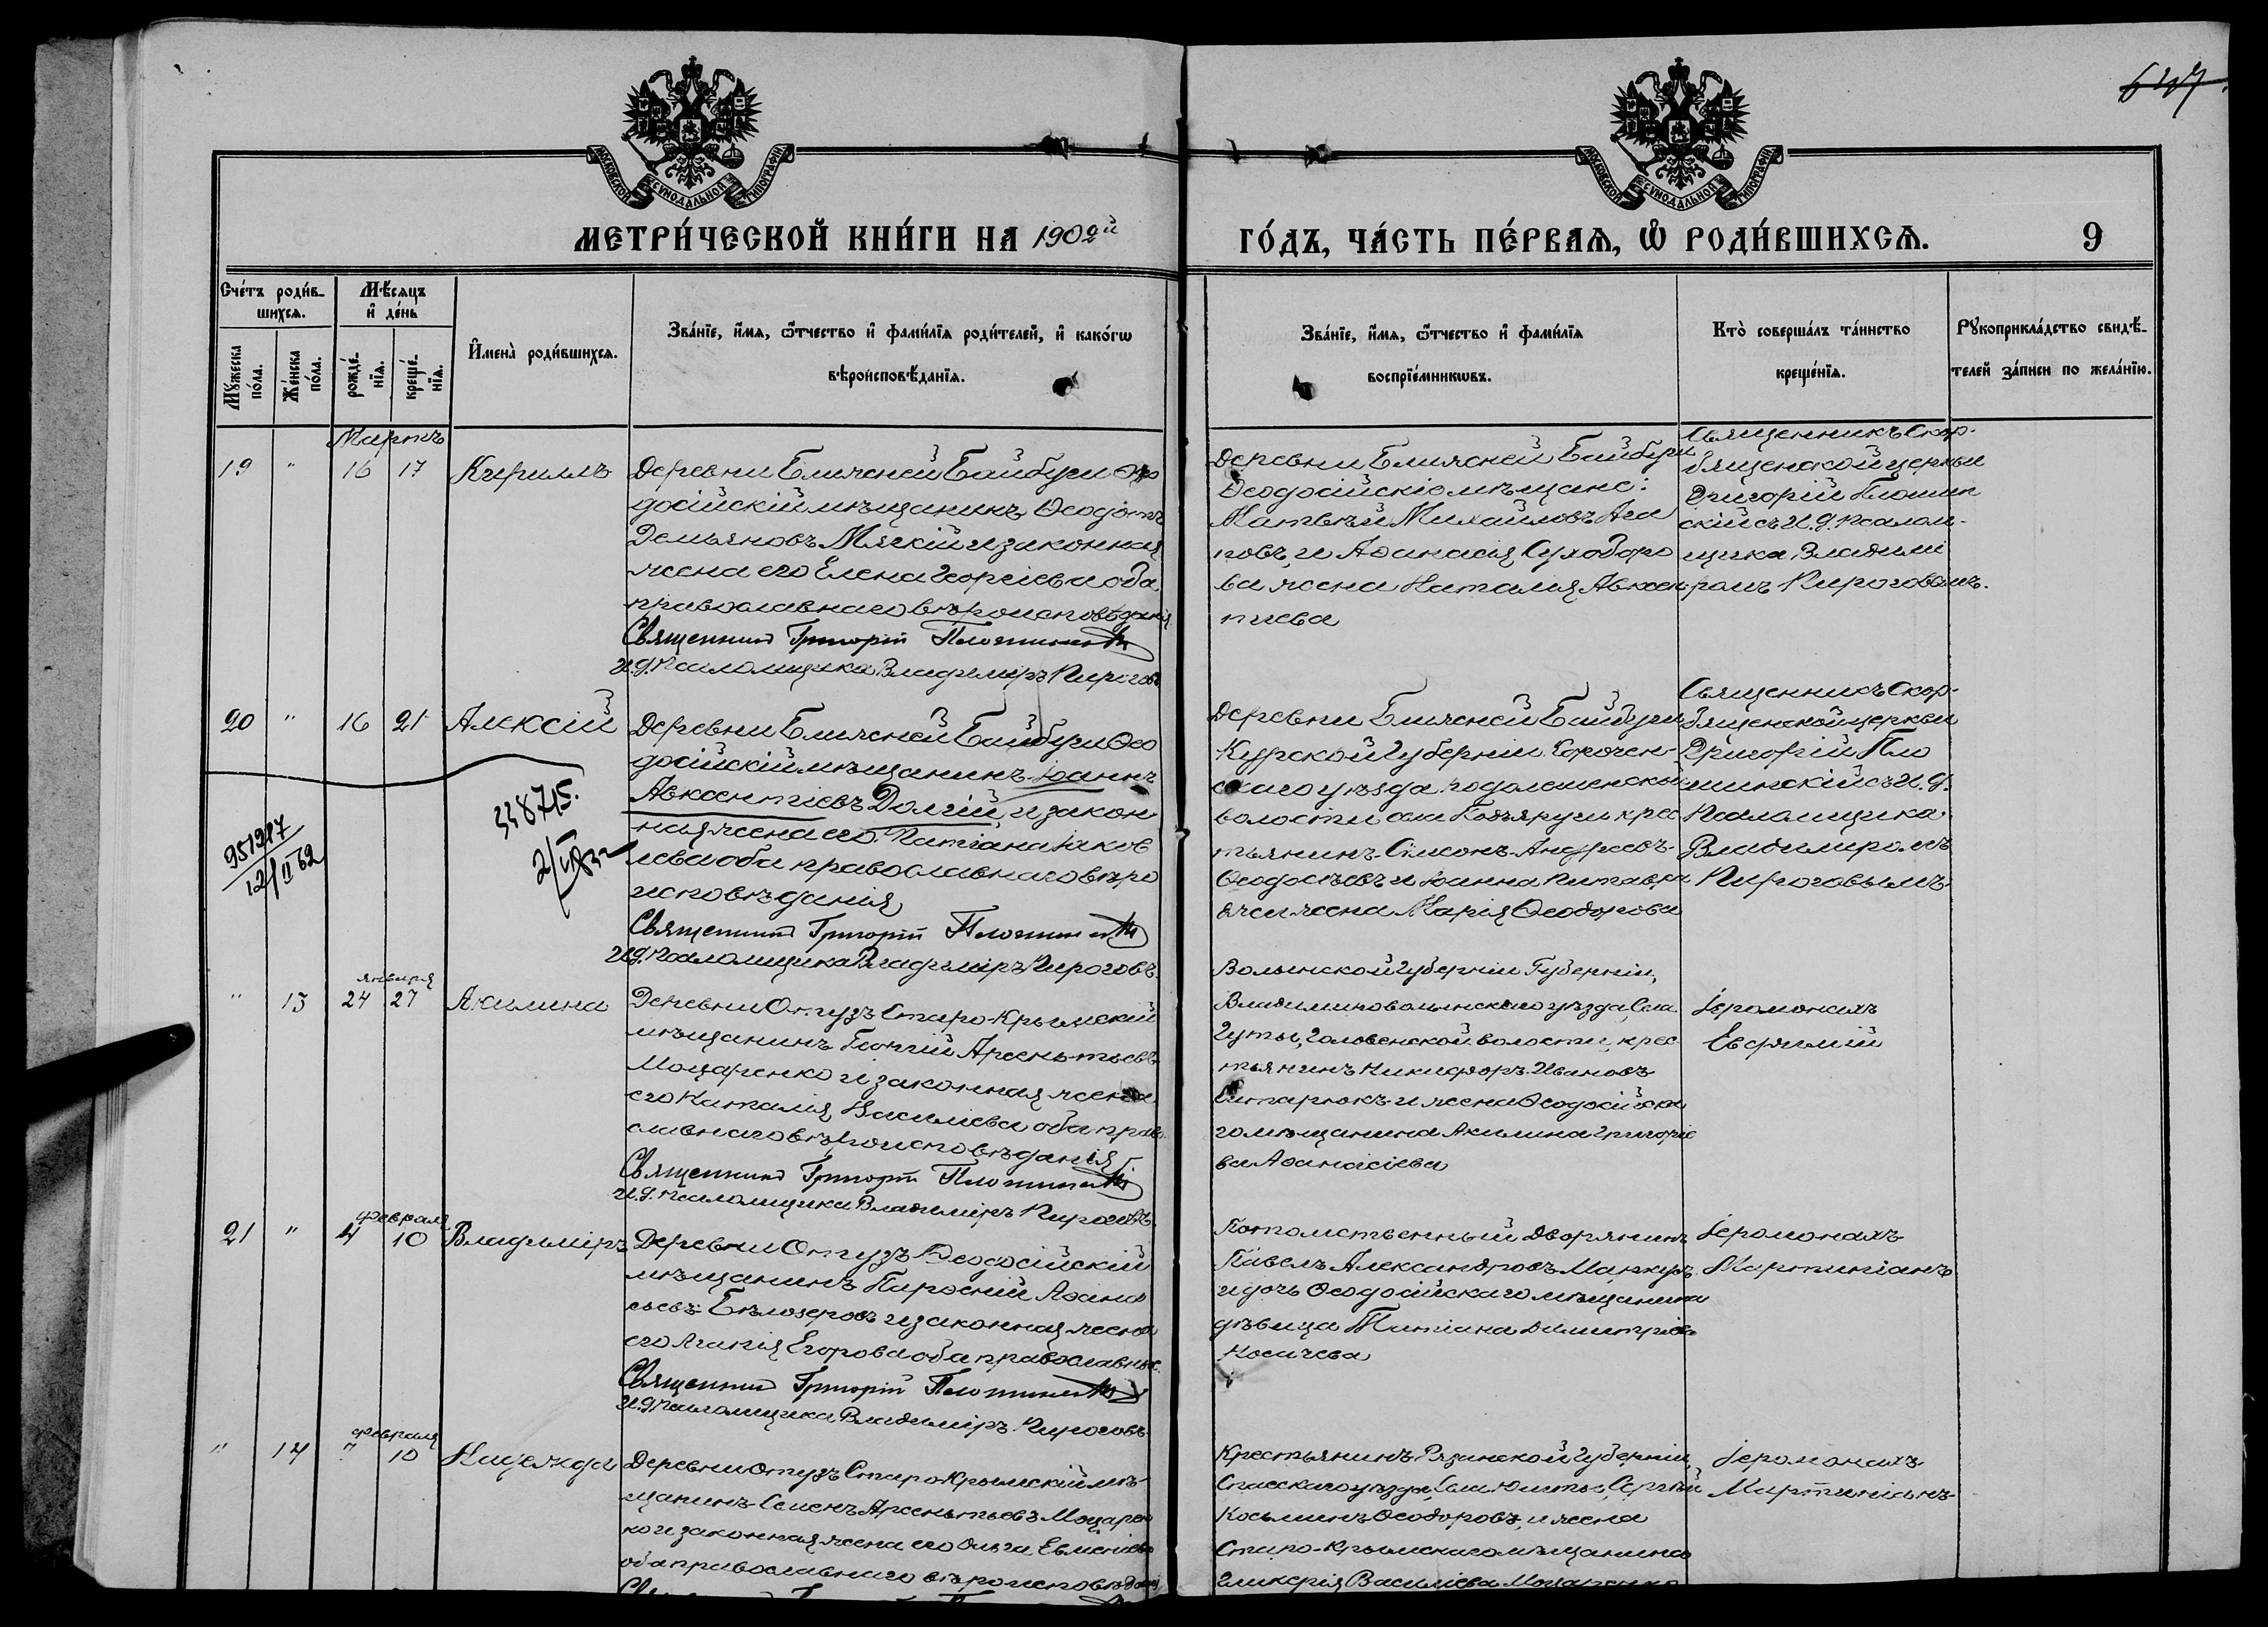 МОСКОВСКОЙ СѴНОДАЛЬНОЙ ТИПОГРАФІИ
МОСКОВСКОЙ СѴНОДАЛЬНОЙ ТИПОГРАФІИ
МЕТРИ́ЧЕСКОЙ КНИ́ГИ НА 1902й
ГО́ДЪ, ЧА́СТЬ ПЕ́РВАѦ, Ѡ҆ РОДИ́ВШИХСѦ. 9
Сче́тъ роди́в-
шихсѧ.
Мꙋ́жеска по́ла.
Же́нска по́ла.
Мѣ́сѧцъ
и҆ де́нь
рожде́-
нїѧ.
креще́-
нїѧ.
И҆мена̀ роди́вшихсѧ.
Зва́нїе, и҆́мѧ, ѻ҆́тчество и҆ фами́лїѧ роди́телей, и҆ како́гѡ
вѣроисповѣ́данїѧ.
Зва́нїе, и҆́мѧ, ѻ҆́тчество и҆ фами́лїѧ
воспрїе́мникѡвъ.
Кто̀ соверша́лъ та́инство
креще́нїѧ.
Рꙋкоприкла́дство свидѣ́-
телей за́писи по жела́нїю.
Мартъ
19 " 16 17 Кириллъ
Деревни Ближней Байбуги Ѳео
досійскій мѣщанинъ Ѳеодотъ
Демьяновъ Мягкій и законная
жена его Елена Георгіева оба
православнаго вѣроисповѣданія
Священникъ Григорій
И.д. псаломщика Владиміръ Пироговъ
Деревни Ближней Байбуги
Ѳеодосійскіе мѣщане:
Матвѣй Михайловъ Ага
повъ, и Аѳанасія Сухоборо
ва жена Наталія Авксен
тіева
Священникъ Скор-
бященской церкви
Григорій
скій съ И.д. псалом-
щика Владими
ромъ Пироговымъ.
20 " 16 21 Алексій
Деревни Ближней Байбуги Ѳео
досійскій мѣщанинъ Іоаннъ
Авксентіевъ Долгій, и закон
ная жена его Татіана Іаков
лева оба православнаго вѣро
исповѣданія
Священникъ Григорій
И.д. псаломщика Владиміръ Пироговъ
348715.
951217
12/II 62
Деревни Ближней Байбуги
Курской Губерніи Корочен-
скаго уѣзда
волости села крес
тьянинъ Симеонъ Андреевъ
Ѳеодосѣевъ и Іоанна
жена Марія Ѳеодорова
Священникъ Скор-
бященской церкви
Григорій Пло
шинскій съ И.д.
Псаломщика
Владиміромъ
Пироговымъ
января
" 13 24 27 Акилина
Деревни Отузъ Старо-Крымскій
мѣщанинъ Георгій Арсентьевъ
Моцаренко и законная жена
его Наталія Василіева оба право
славнаго вѣроисповѣданія
Священникъ Григорій
И.д. псаломщика Владиміръ Пироговъ
Волынской Губерніи Губерніи,
Владиміроволынскаго уѣзда, села
Гуты, Головенской волости, крес
тьянинъ Никифоръ Ивановъ
и жена Ѳеодосійска
го мѣщанина Акилина Григоріе
ва Аѳанасіева
Іеромонахъ
Евфимій
февраля
21 " 4 10 Владиміръ
Деревни Отузъ Ѳеодосійскій
мѣщанинъ Парѳеній Аѳана
сьевъ Бѣлозеровъ и законная жена
его Агапія Егорова оба православные
Священникъ Григорій
И.д. псаломщика Владиміръ Пироговъ
Потомственный Дворянинъ
Павелъ Александровъ
и дочь Ѳеодосійскаго мѣщанина
дѣвица Татіана Димитріева
Косичева
Іеромонахъ
Мартиніанъ
февраля
" 14 7 10 Надежда
Деревни Отузъ Старо-Крымскій мѣ-
щанинъ Семенъ Арсентьевъ Моцарен
ко и законная жена его Ольга
оба православнаго вѣроисповѣданія
Крестьянинъ Рязанской Губерніи,
Спасскаго уѣзда, Сергѣй
Косьминъ Ѳеодоровъ, и жена
Старо-Крымскаго мѣщанина
Гликерія Василіева Моцаренко
Іеромонахъ
Мартиніанъ